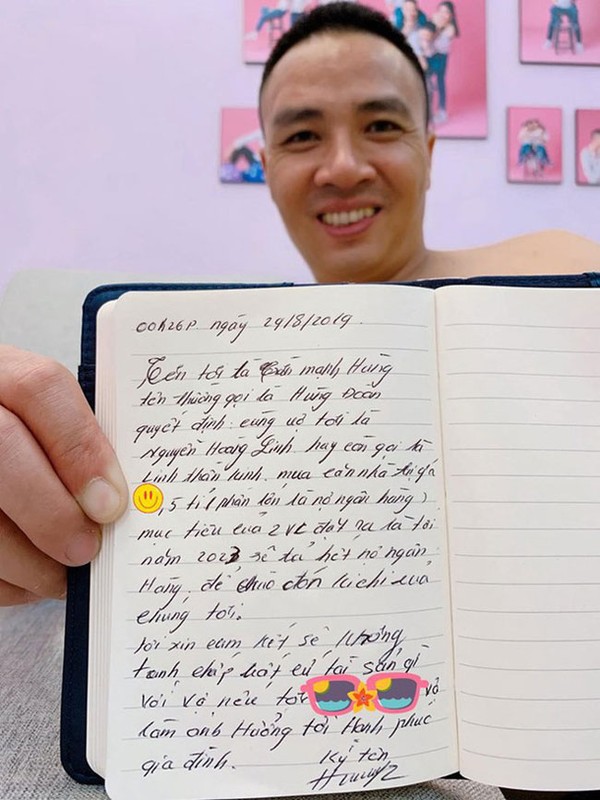 00h26P. ngày 29/8/2019.
Tên tôi là Trần mạnh Hùng
tên thường gọi là Hùng Đoan
quyết định cùng vợ tôi là
Nguyễn Hoàng Linh hay còn gọi là
Linh thần kinh. mua căn nhà trị giá
,5 tỉ ( phần lớn là nợ ngân hàng )
mục tiêu của 2 VC đặt ra là tới
năm 2023 sẽ trả hết nợ ngân
Hàng để chào đón
chúng tôi.
tôi xin cam kết sẽ không
tranh chấp bất cứ tài sản gì
với vợ nếu tôi và
làm ảnh Hưởng tới Hạnh phúc
gia đình. Ký tên